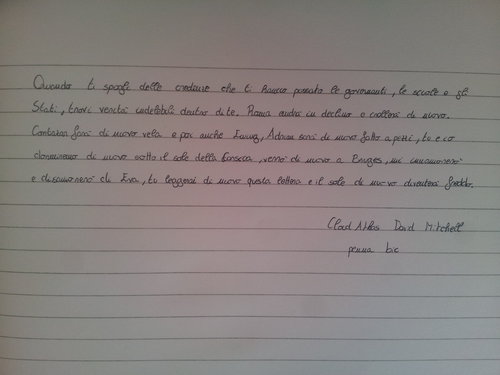 Quando ti spogli delle credenze che ti hanno passato le governanti, le scuole e gli
Stati, trovi verità indelebili dentro di te. Roma andrà in declino e crollerà di nuovo.
farà di nuovo vela e poi anche Ewing, Adrian sarà di nuovo fatto a pezzi, tu e io
dormiremo di nuovo sotto il sole della Corsica, verrò di nuovo a Bruges, mi innamorerò
e disamorerò di Eva, tu leggerai di nuovo questa lettera e il sole di nuovo diventerà freddo.
Cloud Atlas David Mitchell
penna bic